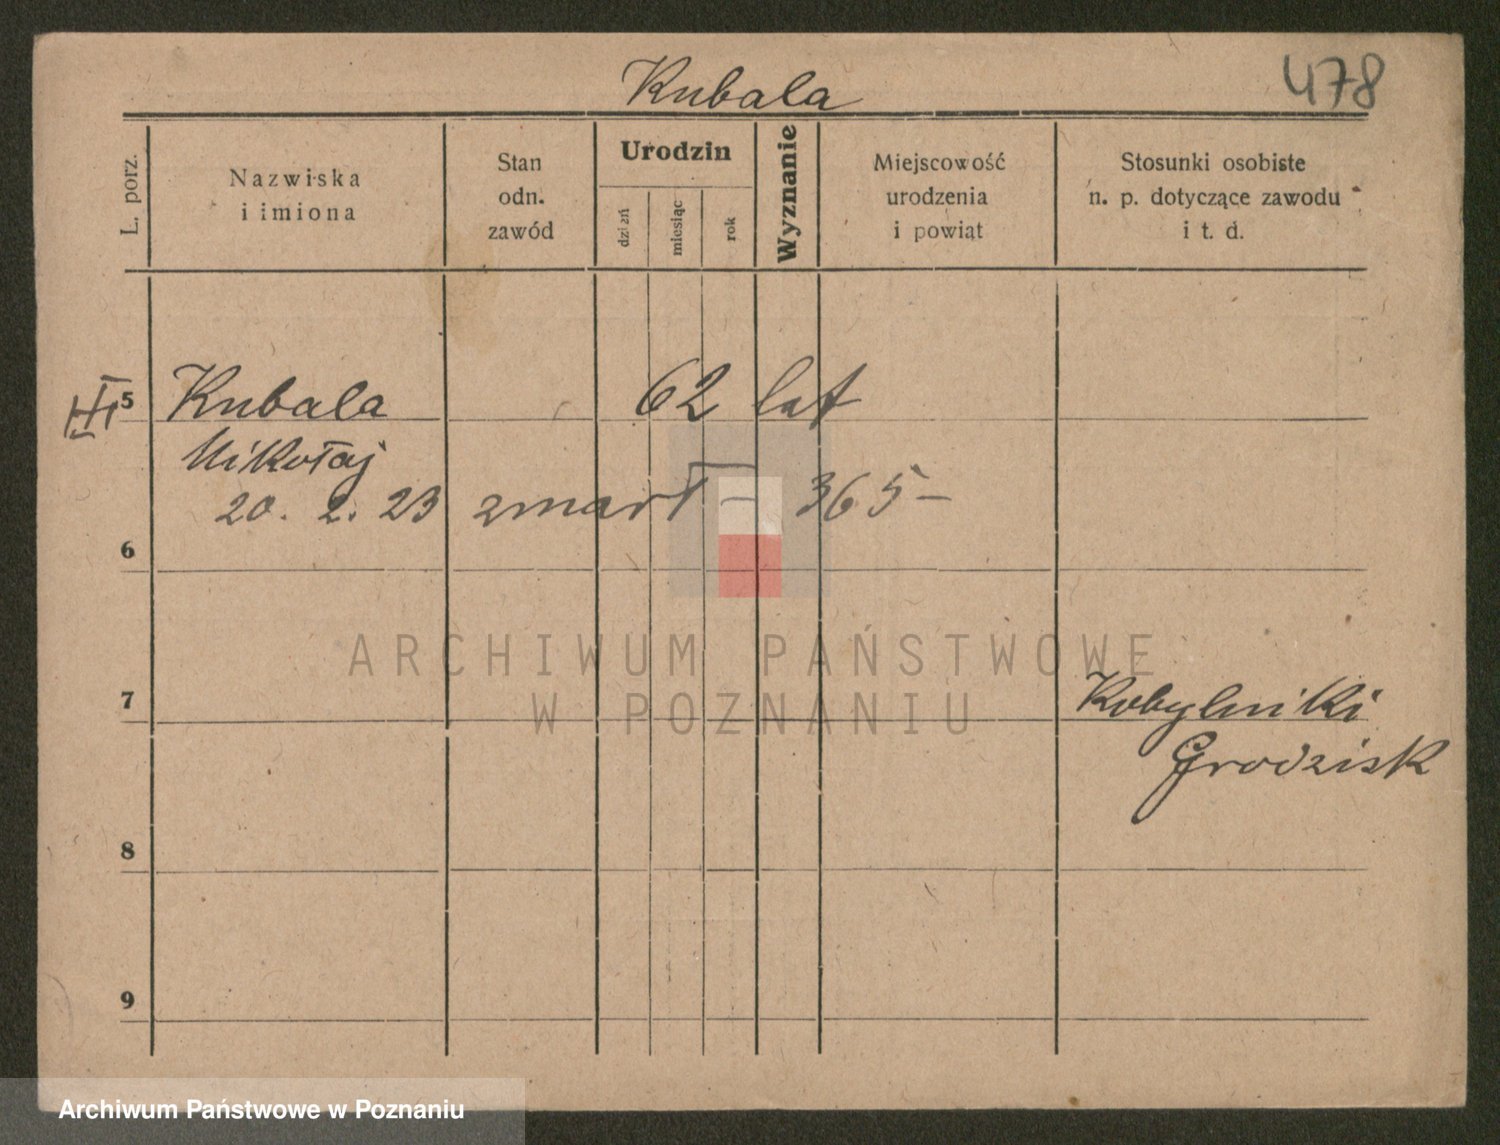 Kubala
478
L. porz.
Nazwiska
i imiona
Stan
odn.
zawód
Urodzin
dzień
miesiąc
rok
Wyznanie
Miejscowość
urodzenia
i powiąt
Stosunki osobiste
n. p. dotyczące zawodu
i t. d.
III
5 Kubala 62 lat
Mikołaj
20. 2. 23 zmarł – 365 –
6
ARCHIWUM PAŃSTWOWE
W POZNANIU
7 Kobylniki
Grodzisk
8
9
Archiwum Państwowe w Poznaniu